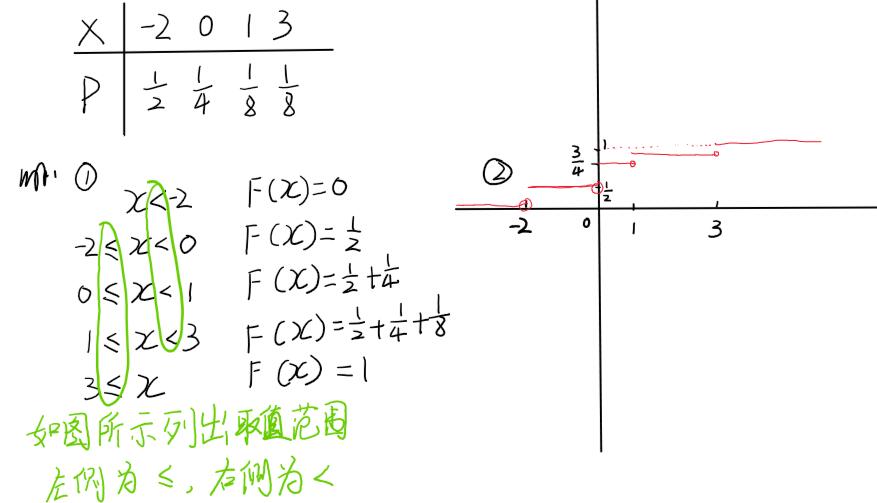 X -2 0 1 3
P 1/2 1/4 1/8 1/8
解: ①
x<-2 F(x)=0
-2≤x<0 F(x)=1/2
0≤x<1 F(x)=1/2+1/4
1≤x<3 F(x)=1/2+1/4+1/8
3≤x F(x)=1
如图所示列出取值范围
左侧为≤,右侧为<
②
1
3/4
1/2
-2 0 1 3